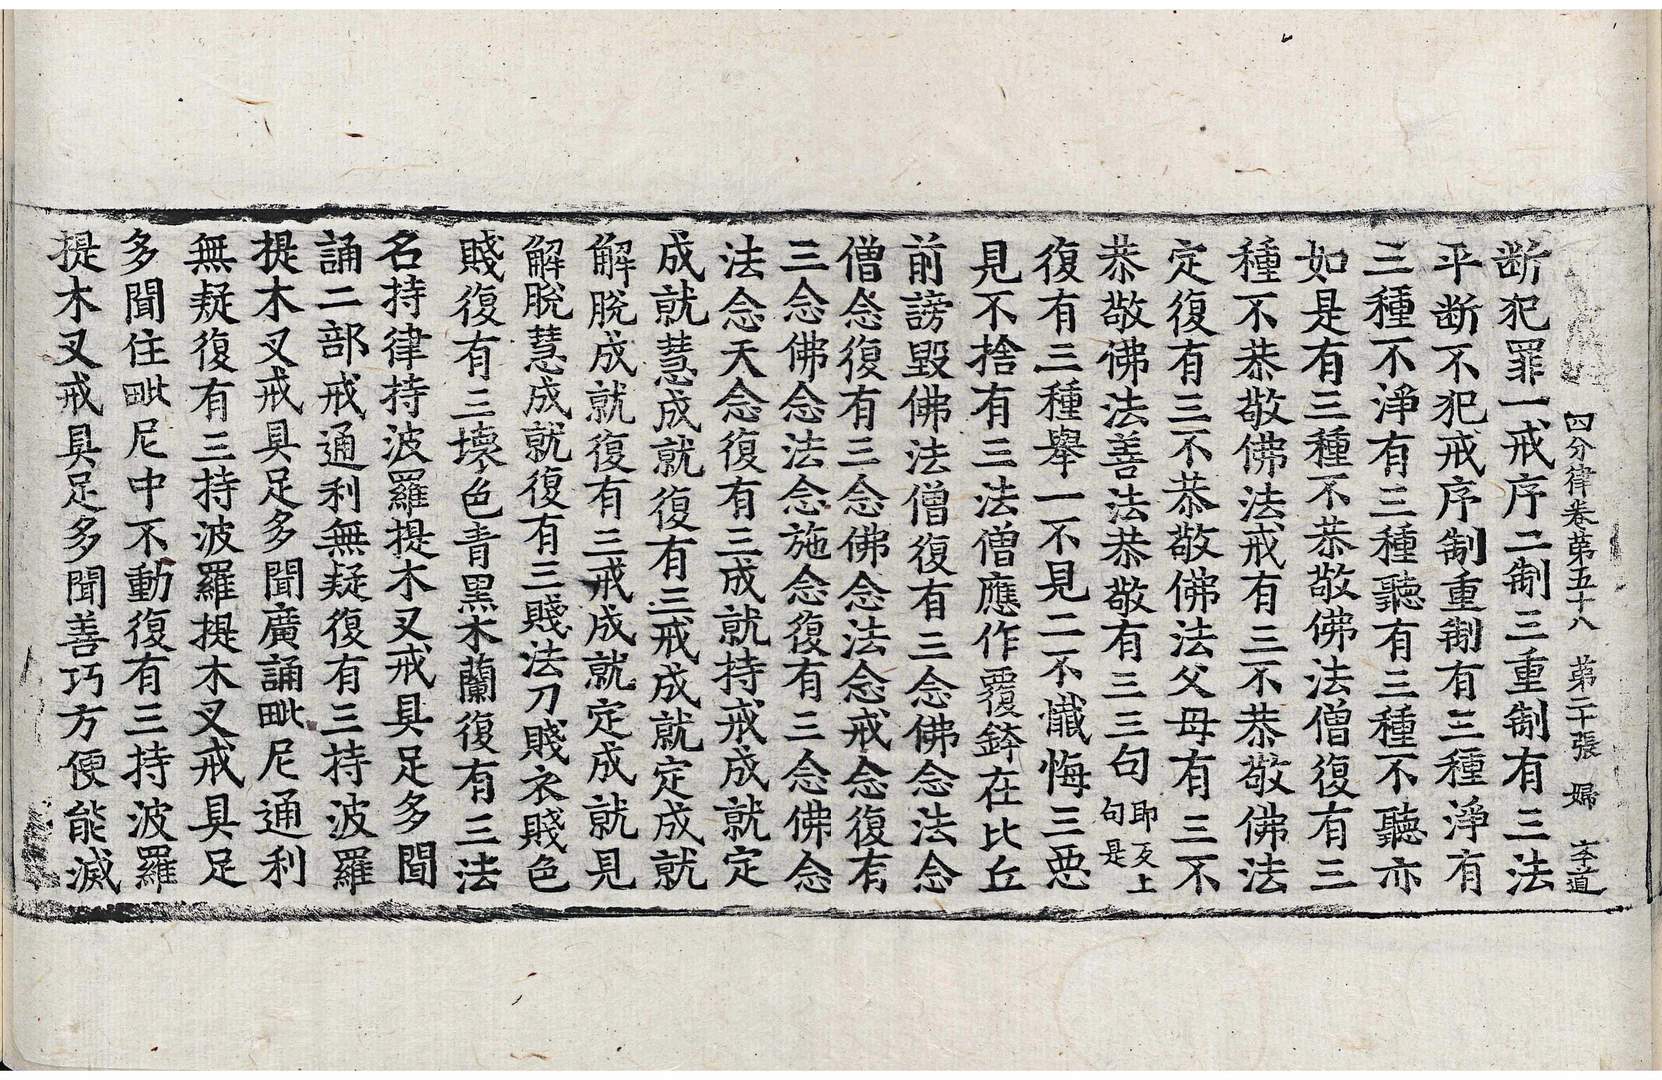 四分律卷第五十八 第二十張 婦 李道
断犯罪一戒序二制三重制有三法
平断不犯戒序制重制有三種淨有
三種不淨有三種聽有三種不聽亦
如是有三種不恭敬佛法僧復有三
種不恭敬佛法戒有三不恭敬佛法
定復有三不恭敬佛法父母有三不
恭敬佛法善法恭敬有三三句即是上句
復有三種舉一不見二不懺悔三惡
見不捨有三法僧應作覆鉢在比丘
前謗毀佛法僧復有三念佛念法念
僧念復有三念佛念法念戒念復有
三念佛念法念施念復有三念佛念
法念天念復有三成就持戒成就定
成就慧成就復有三戒成就定成就
解脫成就復有三戒成就定成就見
解脫慧成就復有三賤法刀賤衣賤色
賤復有三壞色青黑木蘭復有三法
名持律持波羅提木叉戒具足多聞
誦二部戒通利無疑復有三持波羅
提木叉戒具足多聞廣誦毗尼通利
無疑復有三持波羅提木叉戒具足
多聞住毗尼中不動復有三持波羅
提木叉戒具足多聞善巧方便能滅